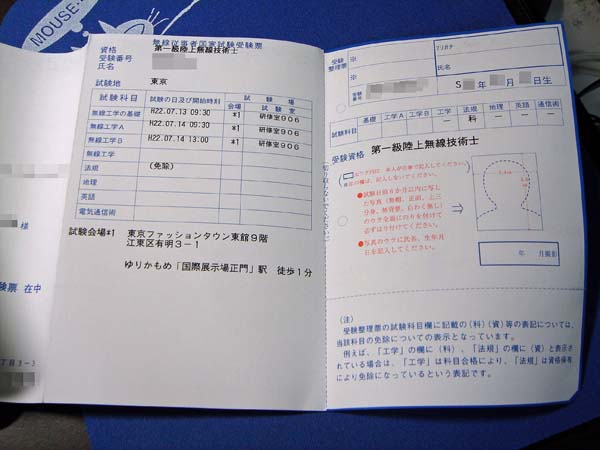 MOUSE
無線従事者国家試験受験票
資格 第一級陸上無線技術士
受験番号
氏名
試験地 東京
試験科目 試験の日及び開始時刻 試験場
会場 試験室
無線工学の基礎 H22.07.13 09:30 *1 研修室906
無線工学A H22.07.14 09:30 *1 研修室906
無線工学B H22.07.14 13:00 *1 研修室906
無線工学
法規 (免除)
地理
英語
電気通信術
試験会場*1 東京ファッションタウン東館9階
江東区有明3-1
ゆりかもめ「国際展示場正門」駅 徒歩1分
様
験票 在中
丁目3-3
受験整理票 ※ フリガナ
※ 氏名
受験番号 S 年 月 日生
試験科目 基礎 工学A 工学B 工学 法規 地理 英語 通信術
― 科 ― ― ―
受験資格 第一級陸上無線技術士
●試験日前6か月以内に写し
た写真(無帽、正面、上三
分身、無背景、白わく無し)
のウラ全面にのりを付けて
必ずはり付けてください。
●写真のウラに氏名、生年月
日を記入してください。
年 月撮影
(注)
受験整理票の試験科目欄に記載の(科)(資)等の表記については、
当該科目の免除についての表示となっています。
例えば、「工学」の欄に(科)、「法規」の欄に(資)と表示さ
れている場合は、「工学」は科目合格により、「法規」は資格保有
により免除になっているという表記です。